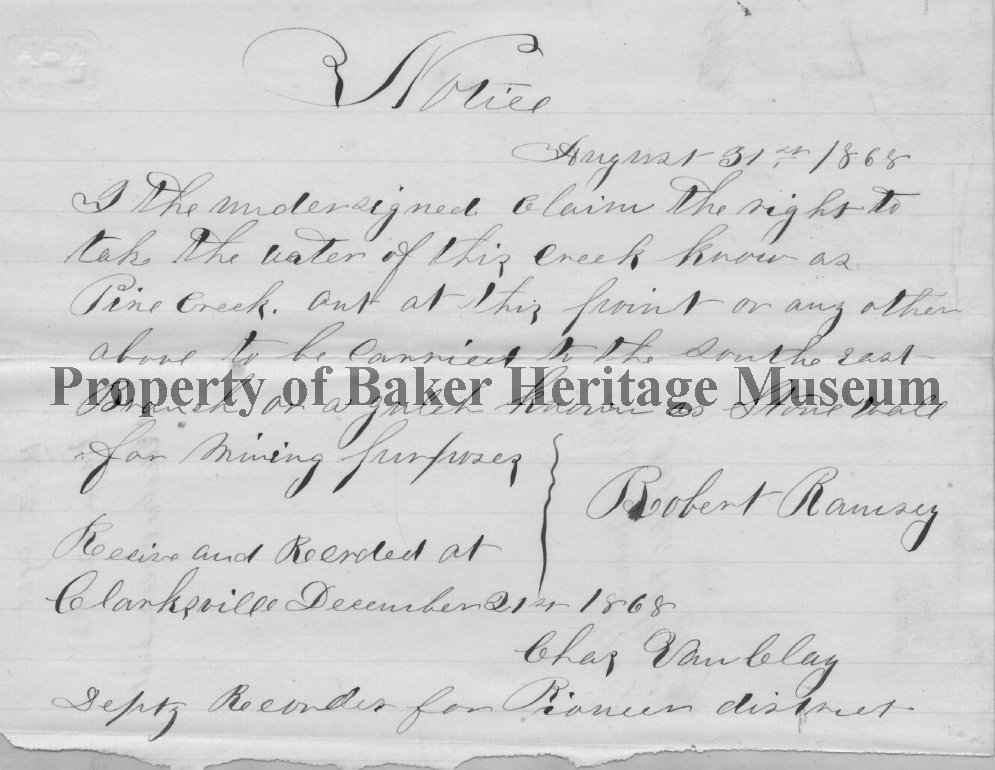 Notice
August 31st 1868
I the undersigned Claim the right to
take the water of this Creek know as
Pine Creek. out at this point or any other
above to be Carried to the south east
Property of Baker Heritage Museum
Branch or a gulch known as Stone wall
for Mining purposes
Robert Ramsey
Receive and Recorded at
Clarksville December 21st 1868
Chas Van Clay
Depty Recorder for Pioneer district